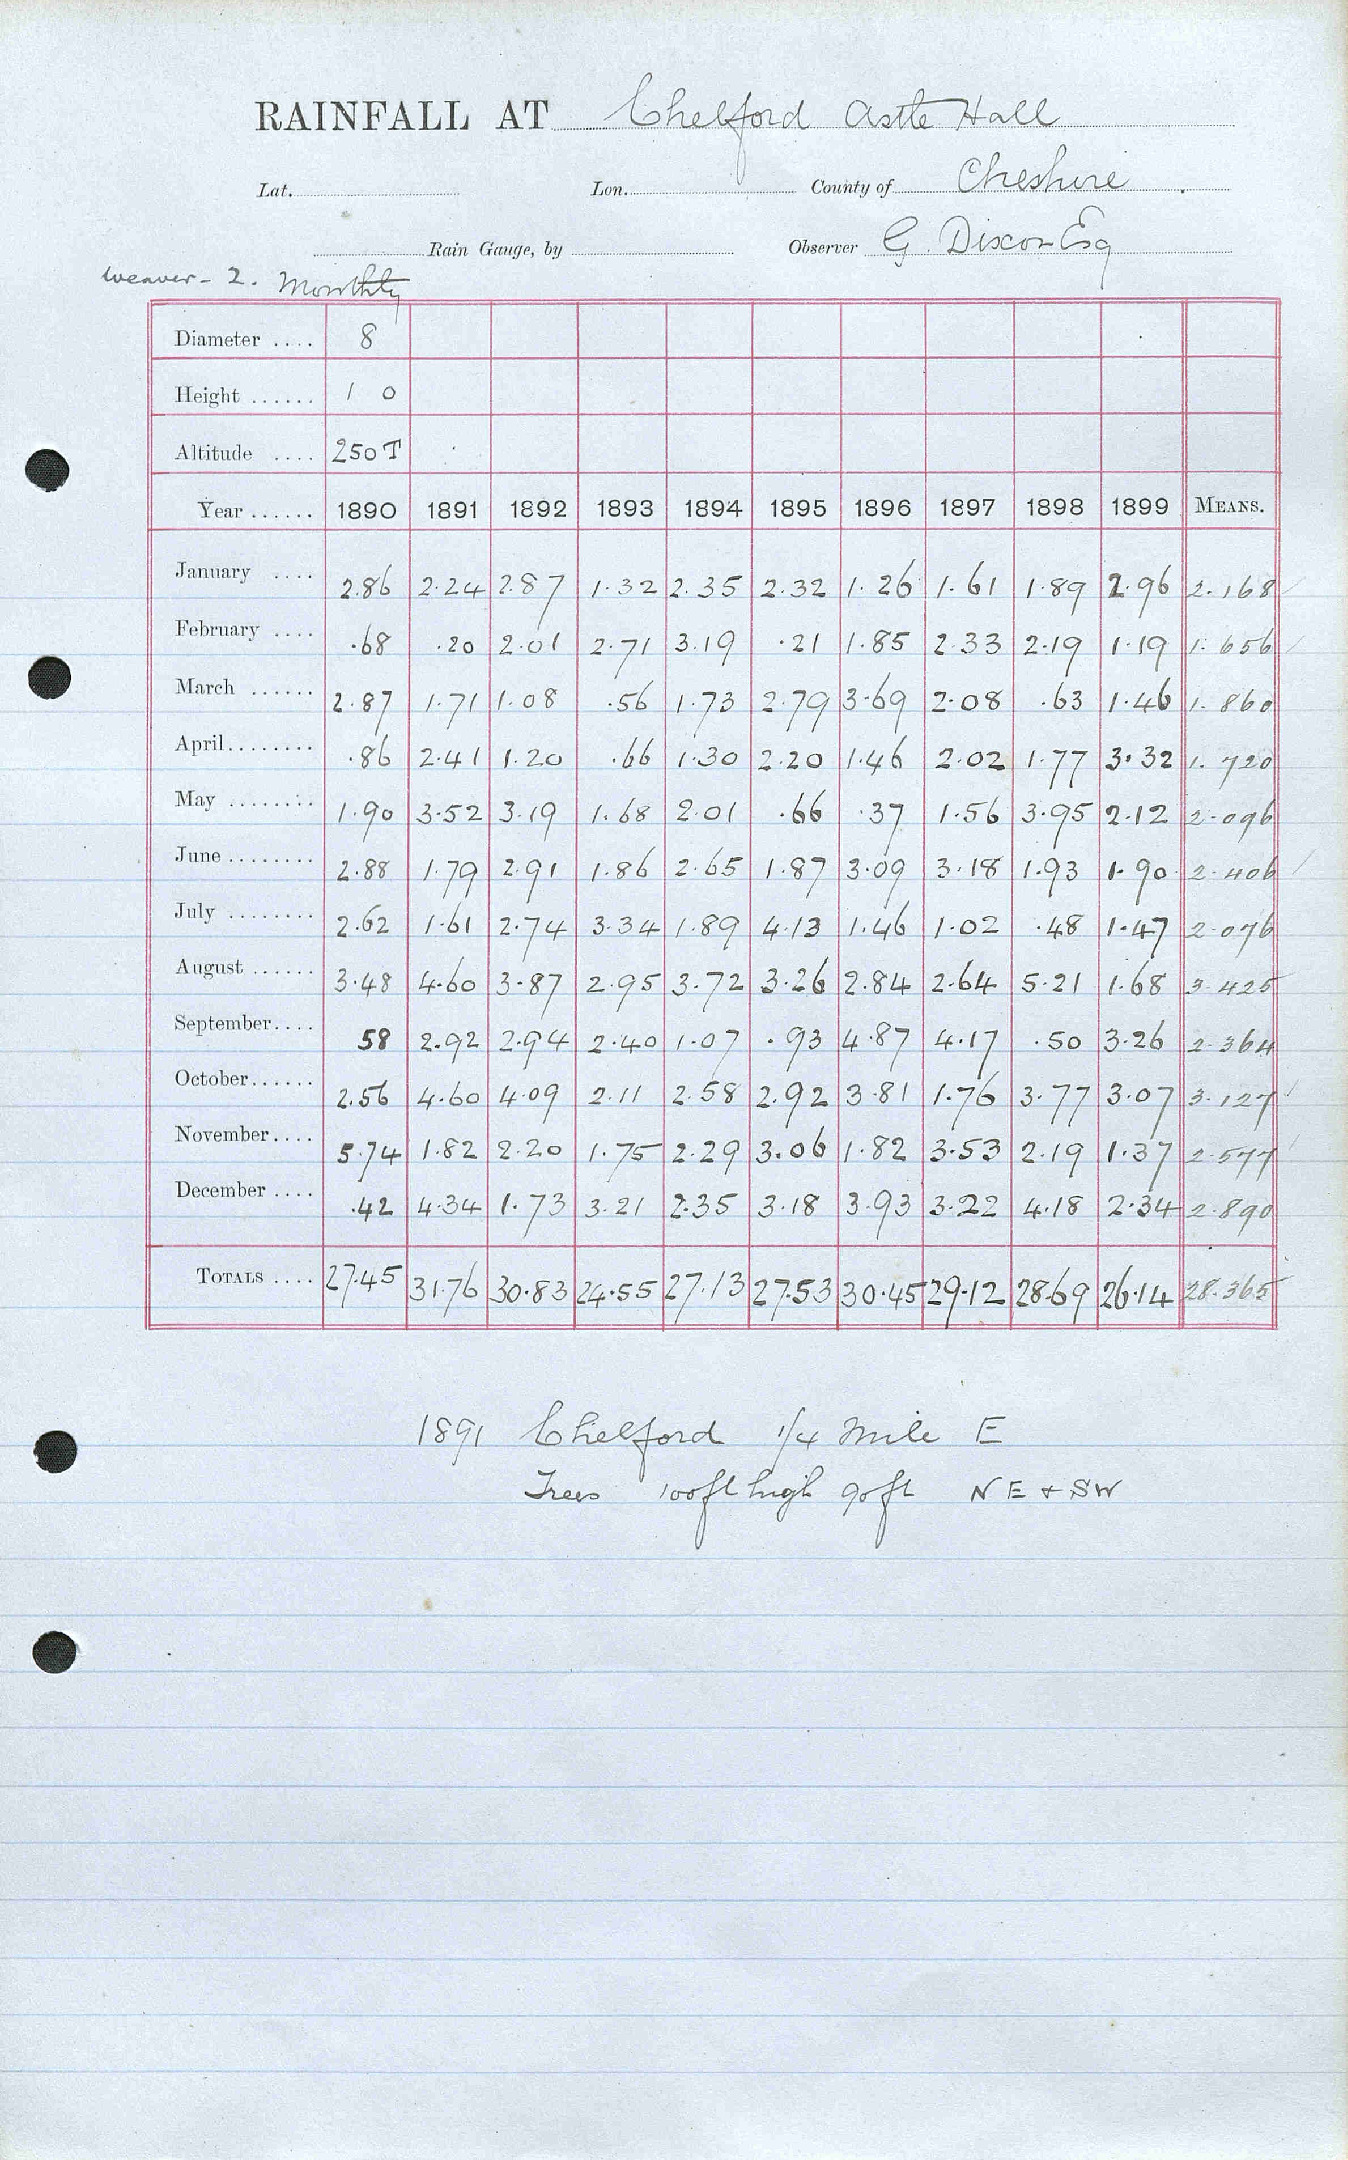 RAINFALL AT Chelford Astle Hall
Lat. Lon. County of Cheshire
Rain Gauge, by Observer G. Dixon Esq
Weaver - 2. Monthly
Diameter .... 8
Height ...... 1 0
Altitude .... 250 T
Year ...... 1890 1891 1892 1893 1894 1895 1896 1897 1898 1899 MEANS.
January .... 2.86 2.24 2.87 1.32 2.35 2.32 1.26 1.61 1.89 2.96 2.168
February .... .68 .20 2.01 2.71 3.19 .21 1.85 2.33 2.19 1.19 1.656
March ...... 2.87 1.71 1.08 .56 1.73 2.79 3.69 2.08 .63 1.46 1.860
April........ .86 2.41 1.20 .66 1.30 2.20 1.46 2.02 1.77 3.32 1.720
May ........ 1.90 3.52 3.19 1.68 2.01 .66 .37 1.56 3.95 2.12 2.096
June ........ 2.88 1.79 2.91 1.86 2.65 1.87 3.09 3.18 1.93 1.90 2.406
July ........ 2.62 1.61 2.74 3.34 1.89 4.13 1.46 1.02 .48 1.47 2.076
August ...... 3.48 4.60 3.87 2.95 3.72 3.26 2.84 2.64 5.21 1.68 3.425
September.... 58 2.92 2.94 2.40 1.07 .93 4.87 4.17 .50 3.26 2.364
October...... 2.56 4.60 4.09 2.11 2.58 2.92 3.81 1.76 3.77 3.07 3.127
November.... 5.74 1.82 2.20 1.75 2.29 3.06 1.82 3.53 2.19 1.37 2.577
December .... .42 4.34 1.73 3.21 2.35 3.18 3.93 3.22 4.18 2.34 2.890
TOTALS .... 27.45 31.76 30.83 24.55 27.13 27.53 30.45 29.12 28.69 26.14 28.365
1891 Chelford 1/4 mile E
Trees 100ft high 90ft NE + SW